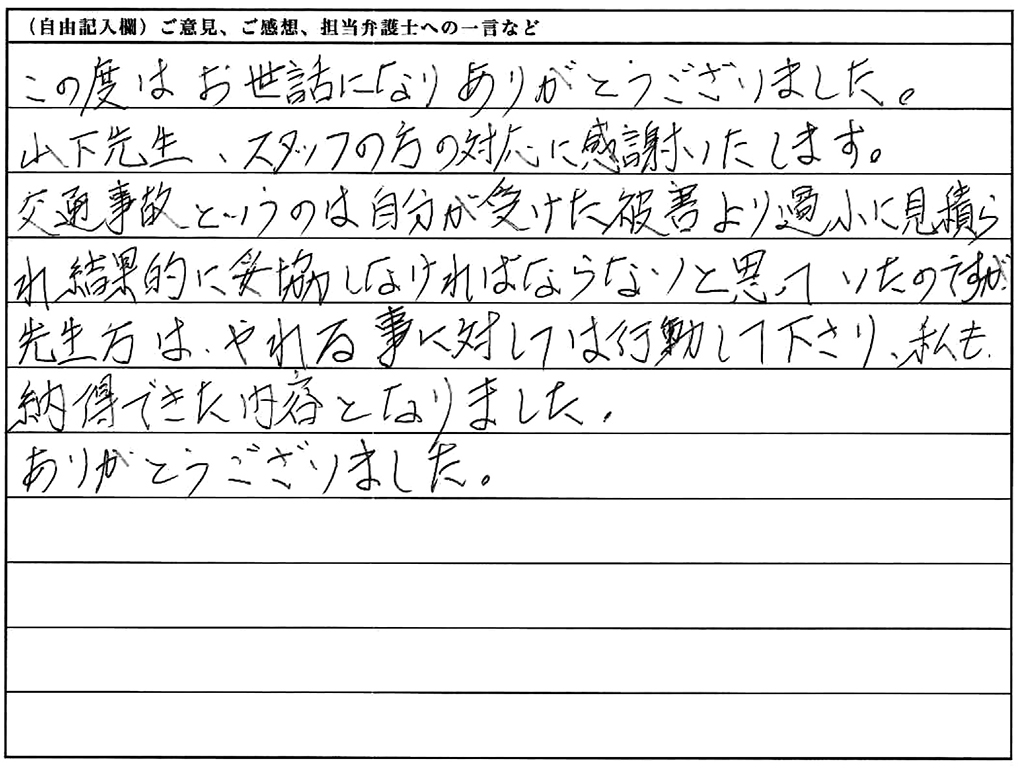 （自由記入欄）ご意見、ご感想、担当弁護士への一言など
この度は お世話になり ありがとうございました。
山下先生、スタッフの方の対応に感謝いたします。
交通事故というのは自分が受けた被害より過小に見積ら
れ結果的に妥協しなければならないと思っていたのですが
先生方は、やれる事に対しては行動して下さり、私も、
納得できた内容となりました。
ありがとうございました。